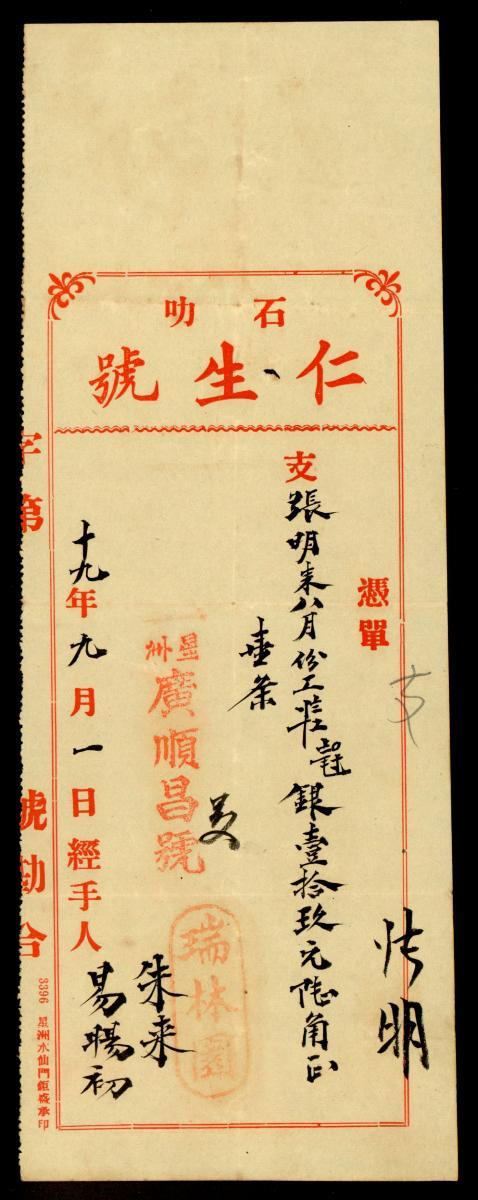 石叻
仁生號
憑單
支
支張明来八月份工裝 銀壹拾玖元陸角正
壹条
張明
星州
廣順昌號
瑞林園
朱来
易暘初
十九年九月一日經手人
字第 號勘合
3396 星洲水仙門鉅盛承印